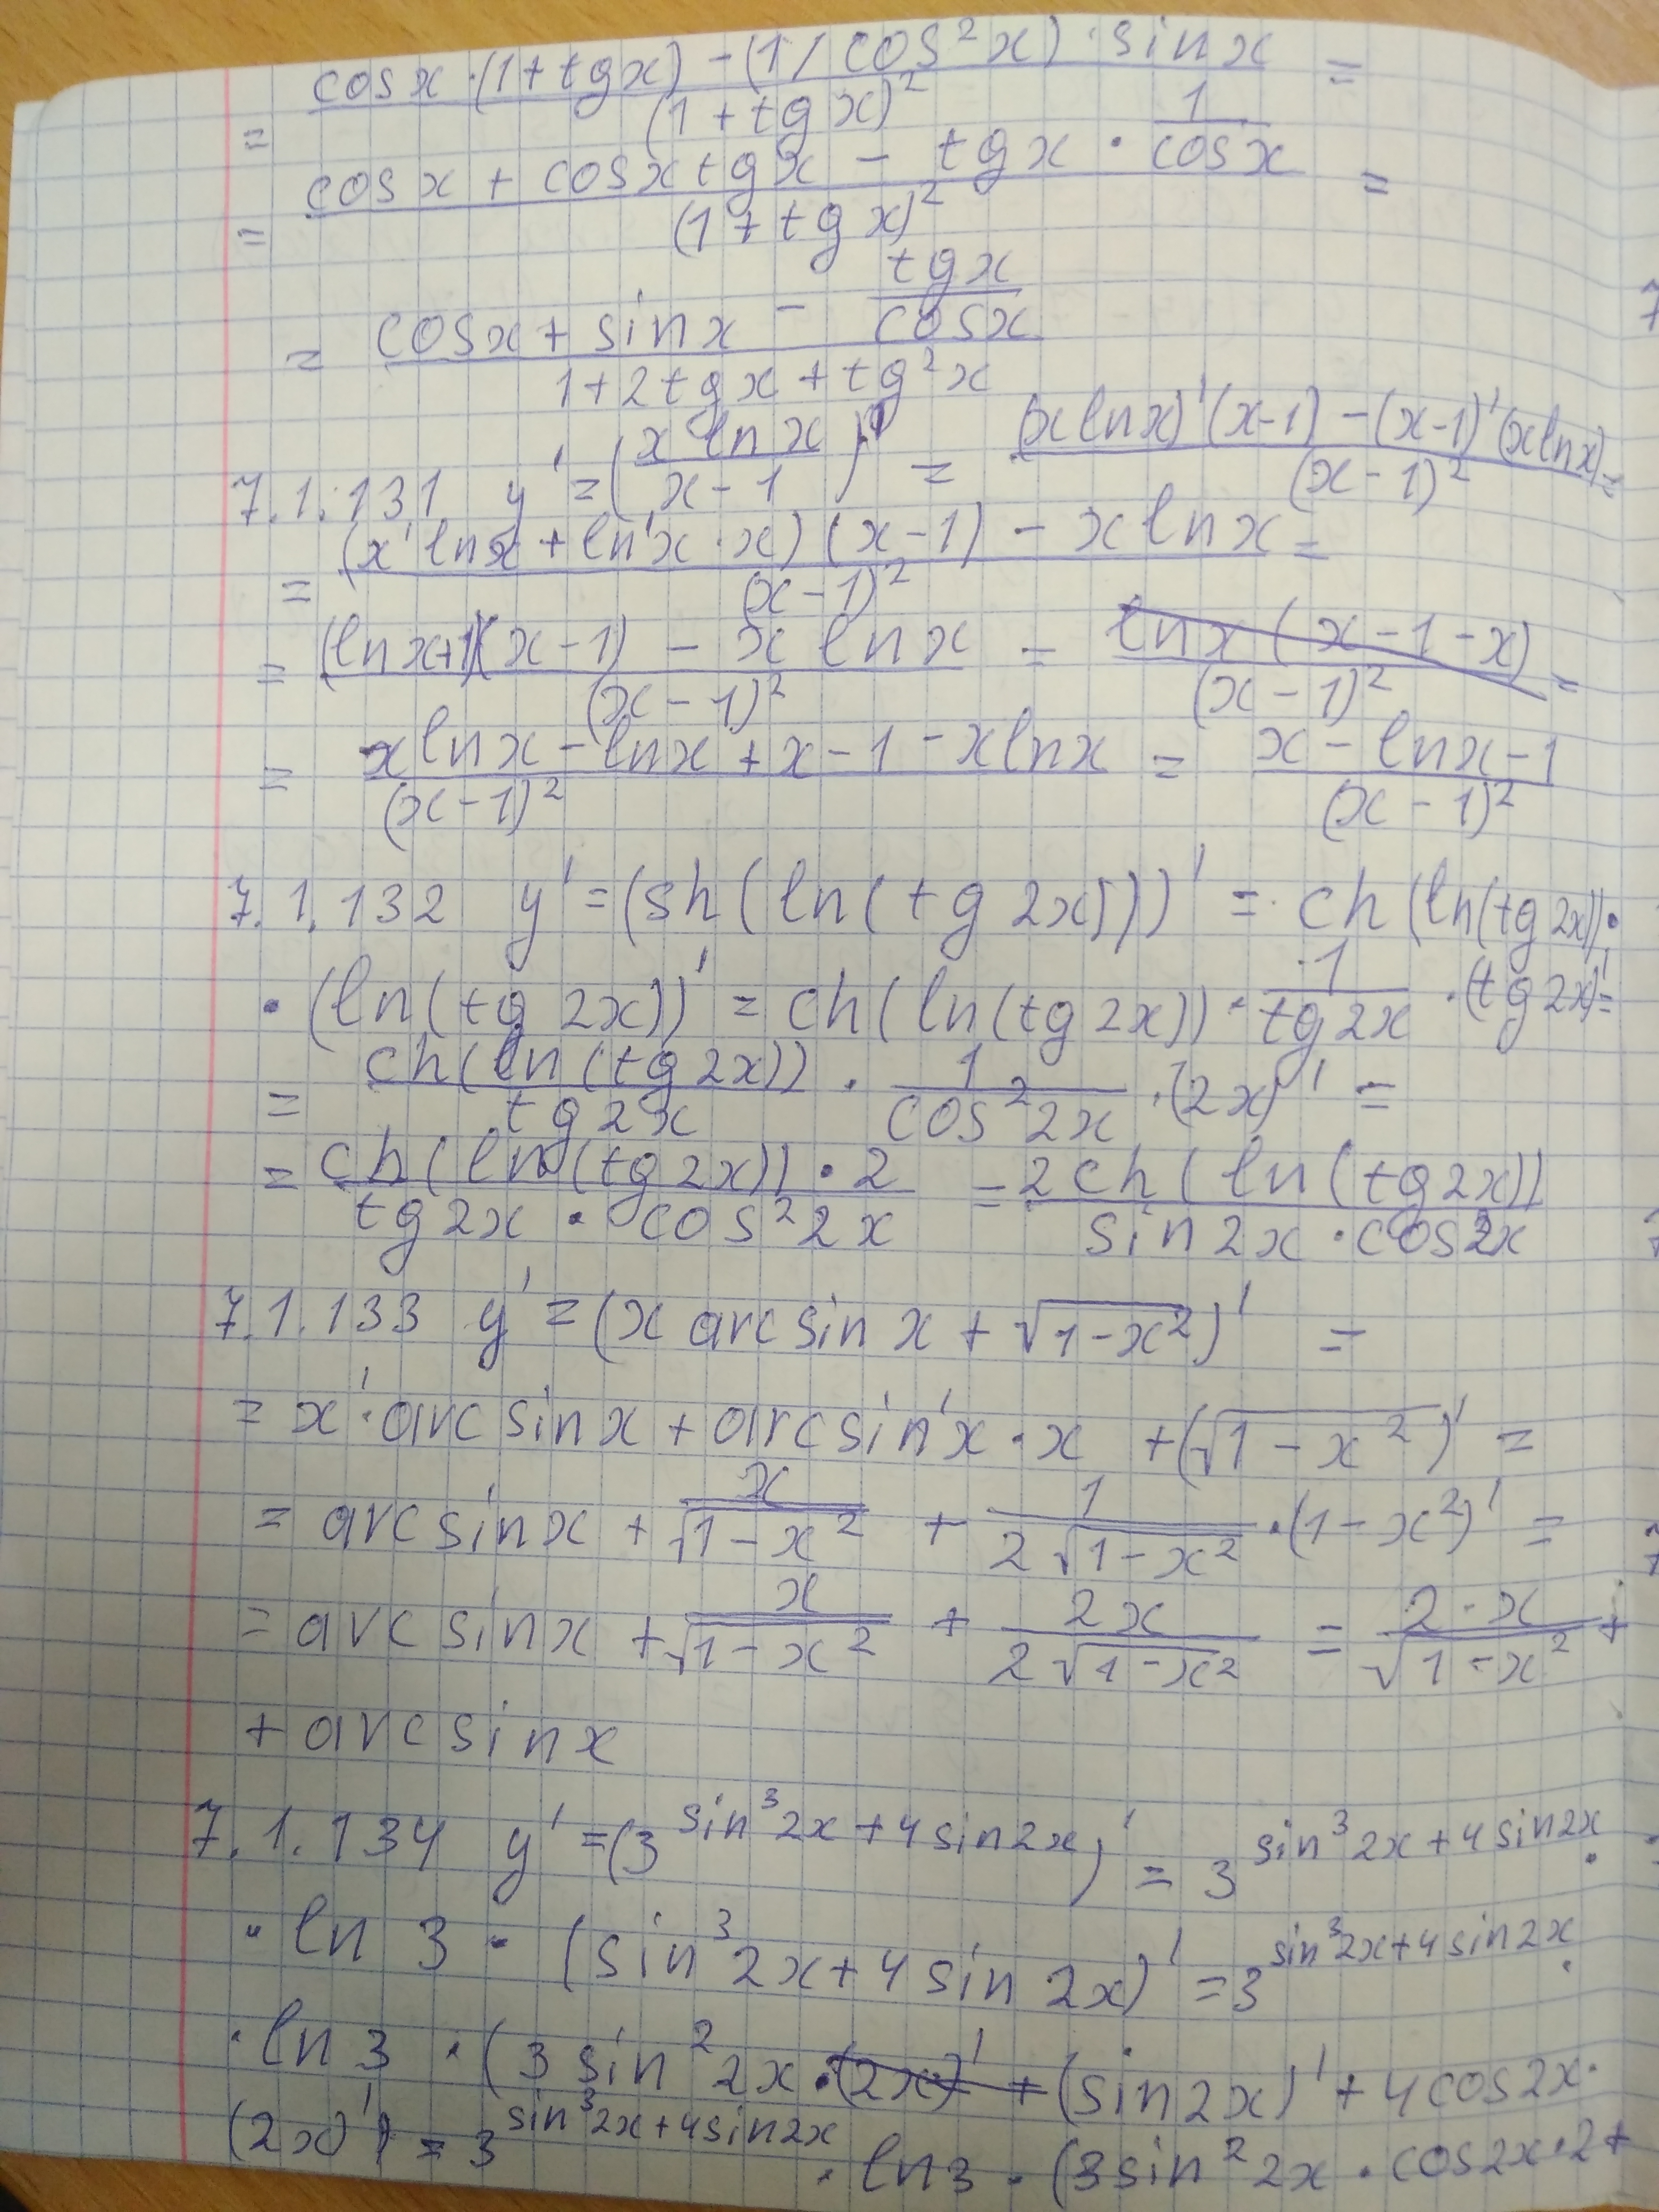 = (cos x · (1 + tg x) - (1 / cos² x) · sin x) / (1 + tg x)² =
= (cos x + cos x tg x - tg x · 1/cos x) / (1 + tg x)² =
= (cos x + sin x - tg x / cos x) / (1 + 2 tg x + tg² x)
7.1.131 y' = (x ln x / (x - 1))' = ((x ln x)' (x-1) - (x-1)' (x ln x)) / (x-1)² =
= ((x' ln x + ln' x · x) (x-1) - x ln x) / (x-1)² =
= ((ln x+1)(x-1) - x ln x) / (x-1)² = ln x (x-1-x) / (x-1)² =
= (x ln x - ln x + x - 1 - x ln x) / (x-1)² = (x - ln x - 1) / (x-1)²
7.1.132 y' = (sh(ln(tg 2x)))' = ch(ln(tg 2x)) ·
· (ln(tg 2x))' = ch(ln(tg 2x)) · 1 / tg 2x · (tg 2x)' =
= ch(ln(tg 2x)) / tg 2x · 1 / cos² 2x · (2x)' =
= ch(ln(tg 2x)) · 2 / (tg 2x · cos² 2x) = 2 ch(ln(tg 2x)) / (sin 2x · cos 2x)
7.1.133 y' = (x arcsin x + √(1-x²))' =
= x' · arcsin x + arcsin' x · x + (√(1-x²))' =
= arcsin x + x / √(1-x²) + 1 / (2√(1-x²)) · (1-x²)' =
= arcsin x + x / √(1-x²) + 2x / (2√(1-x²)) = 2·x / √(1-x²) +
+ arcsin x
7.1.134 y' = (3^(sin³ 2x + 4 sin 2x))' = 3^(sin³ 2x + 4 sin 2x) ·
· ln 3 · (sin³ 2x + 4 sin 2x)' = 3^(sin³ 2x + 4 sin 2x) ·
· ln 3 · (3 sin² 2x · (2x)' + (sin 2x)' + 4 cos 2x ·
(2x)') = 3^(sin³ 2x + 4 sin 2x) · ln 3 · (3 sin² 2x · cos 2x · 2 +